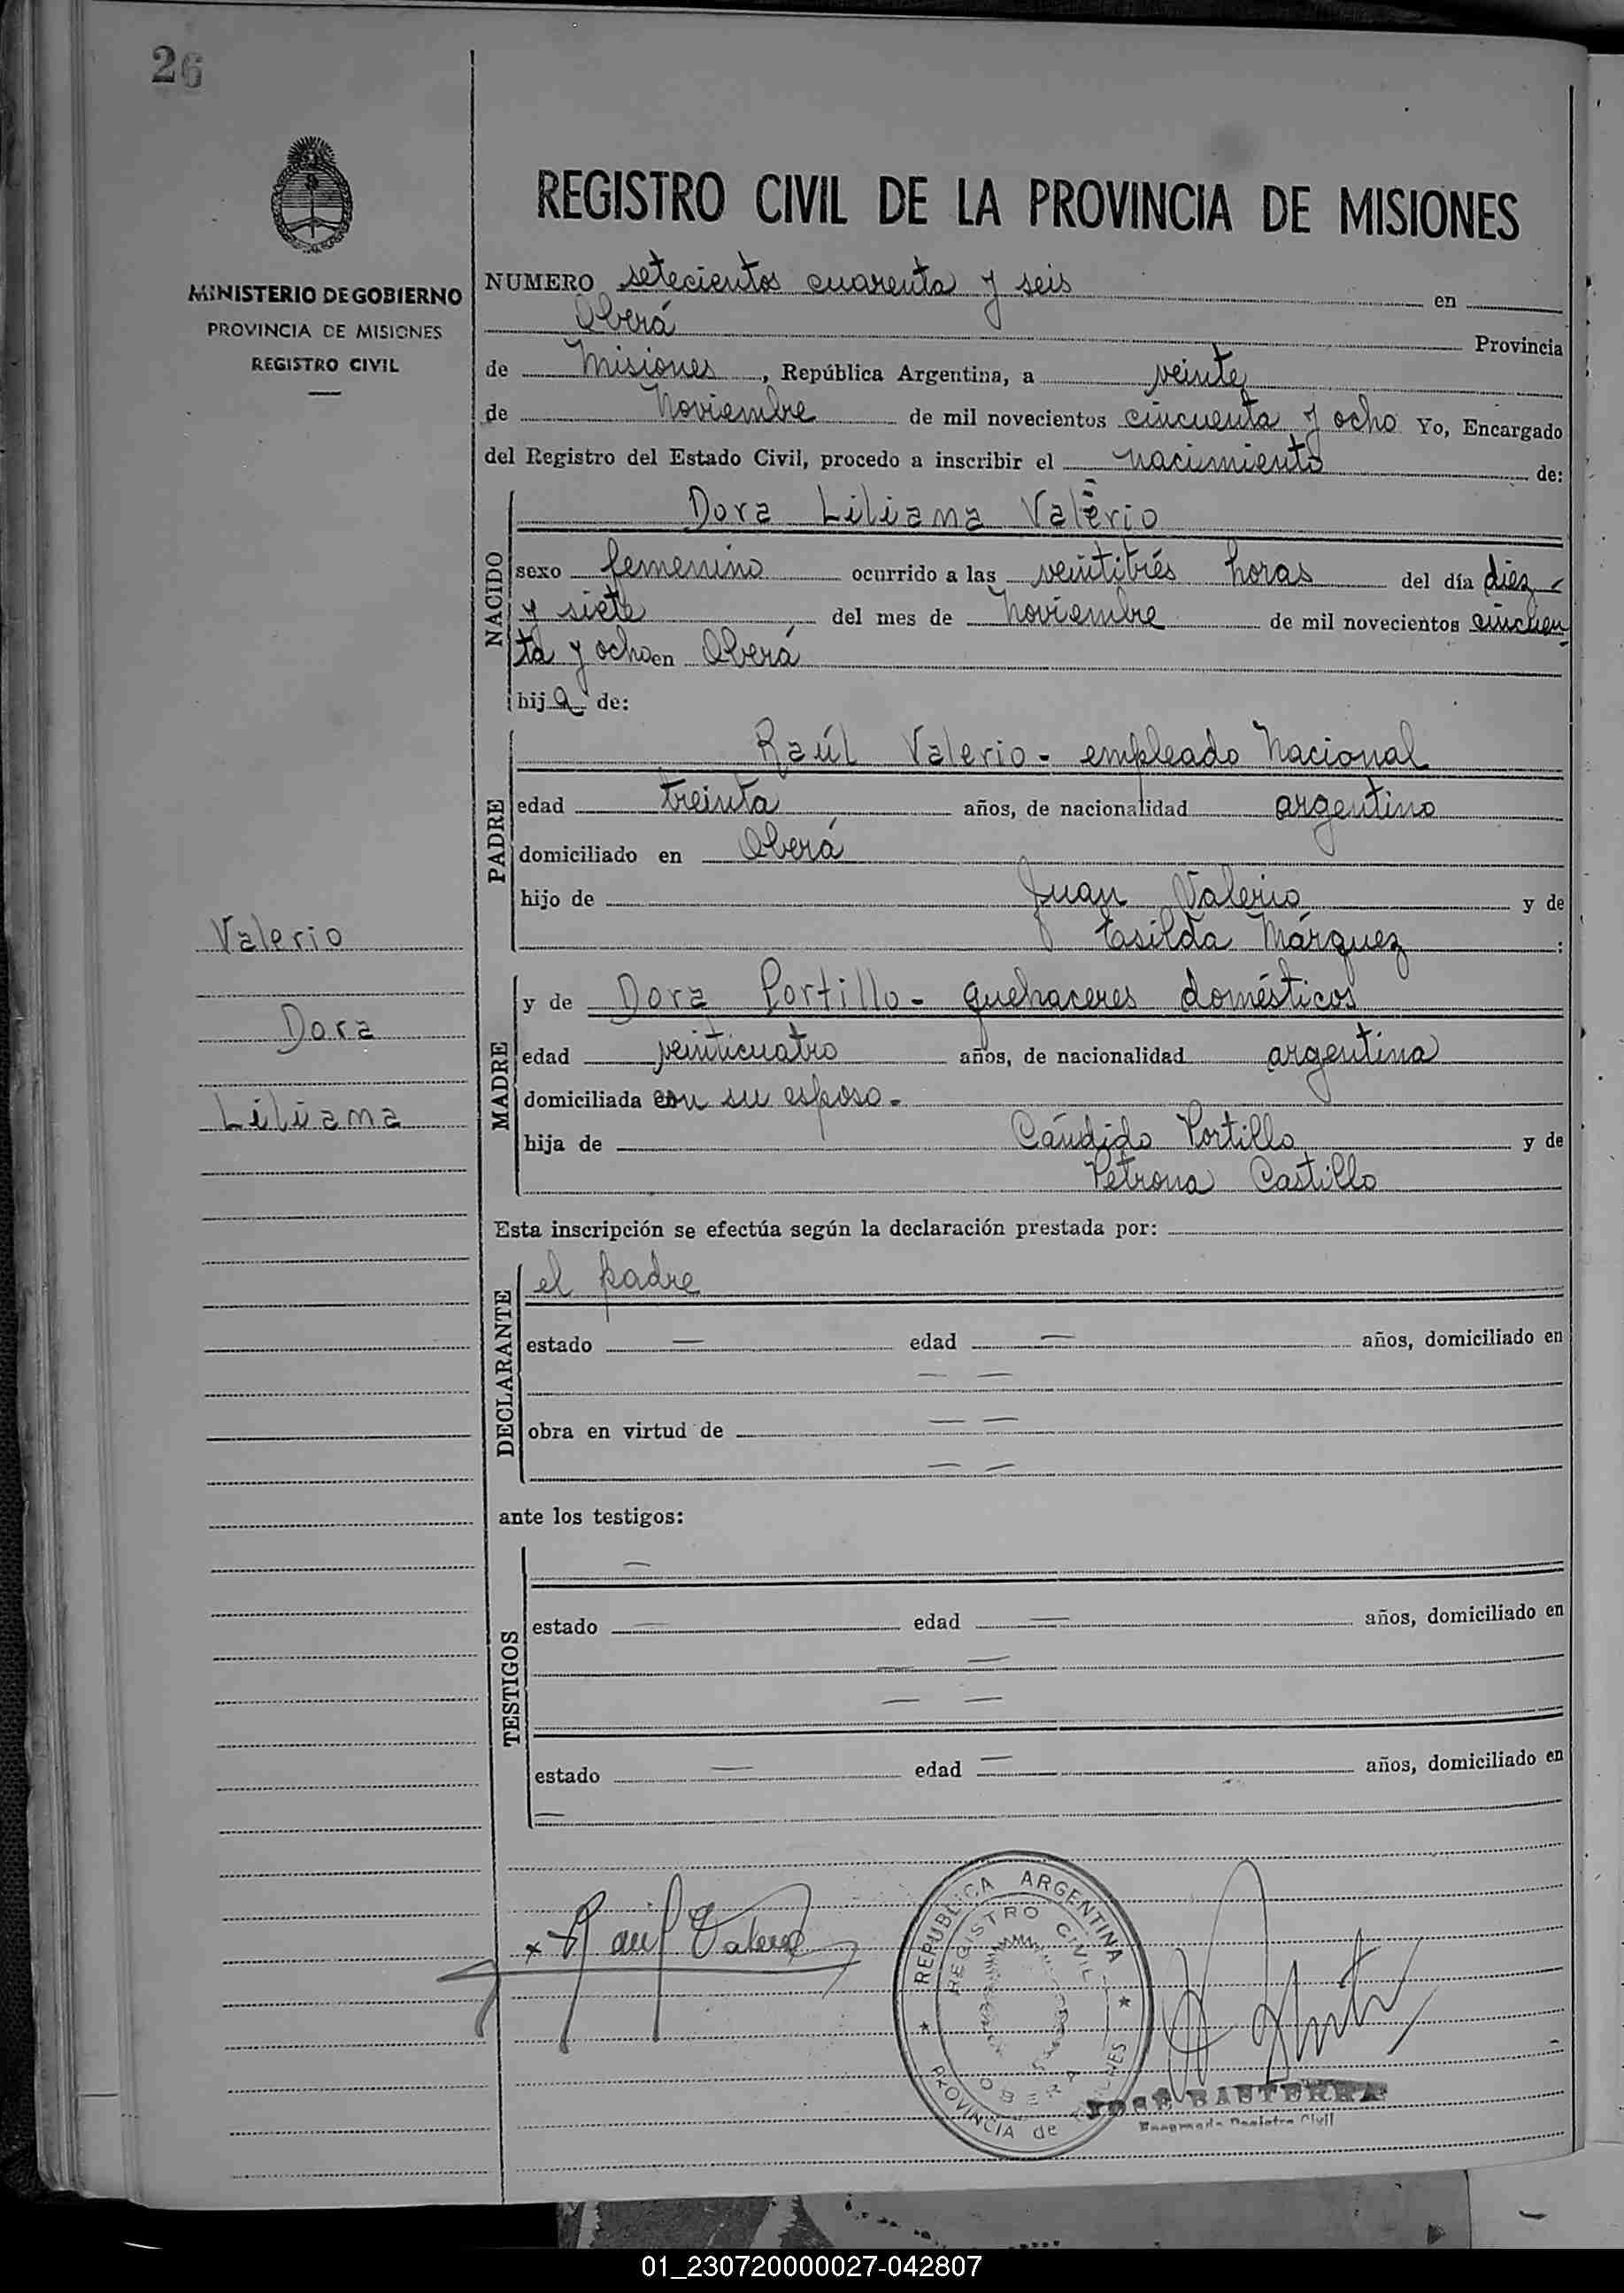 26
MINISTERIO DE GOBIERNO
PROVINCIA DE MISIONES
REGISTRO CIVIL
Valerio
Dora
Liliana
REGISTRO CIVIL DE LA PROVINCIA DE MISIONES
NUMERO setecientos cuarenta y seis en
Oberá Provincia
de Misiones, República Argentina, a veinte
de Noviembre de mil novecientos cincuenta y ocho Yo, Encargado
del Registro del Estado Civil, procedo a inscribir el nacimiento de:
NACIDO
Dora Liliana Valerio
sexo femenino ocurrido a las veintitrés horas del día diez
y siete del mes de Noviembre de mil novecientos cincuen
ta y ocho en Oberá
hija de:
PADRE
Raúl Valerio - empleado Nacional
edad treinta años, de nacionalidad argentino
domiciliado en Oberá
hijo de Juan Valerio y de
Casilda Márquez:
MADRE
y de Dora Portillo - quehaceres domésticos
edad veinticuatro años, de nacionalidad argentina
domiciliada con su esposo.-
hija de Cándido Portillo y de
Petrona Castillo
Esta inscripción se efectúa según la declaración prestada por:
DECLARANTE
el padre
estado — edad — años, domiciliado en
— —
obra en virtud de — —
— —
ante los testigos:
TESTIGOS
—
estado — edad — años, domiciliado en
— —
— —
estado — edad — años, domiciliado en
—
x Raúl Valerio
REPUBLICA ARGENTINA
REGISTRO CIVIL
OBERA
PROVINCIA de MISIONES
JOSÉ BASTERRA
Encargado Registro Civil
01_230720000027-042807